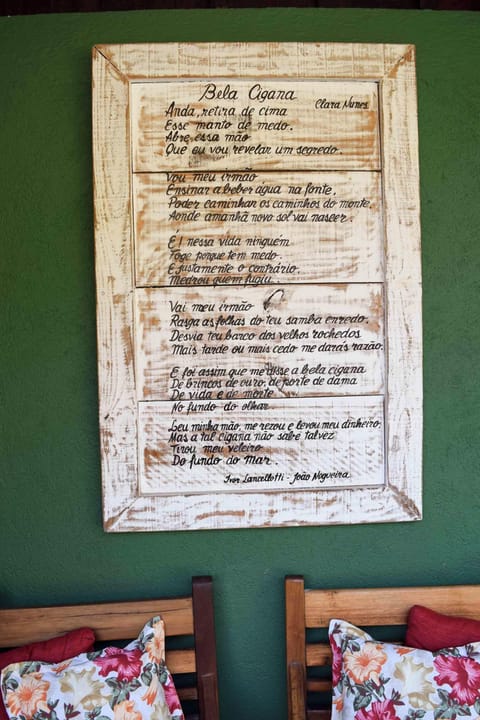 Bela Cigana
Clara Nunes
Anda, retira de cima
Esse manto de medo.
Abre essa mão
Que eu vou revelar um segredo.
Vou meu irmão
Ensinar a beber água na fonte,
Poder caminhar os caminhos do monte,
Aonde amanhã novo sol vai nascer.
É! nessa vida ninguém
Foge porque tem medo.
E justamente o contrário.
Medrou quem fugiu.
Vai meu irmão
Rasga as folhas do teu samba enredo.
Desvia teu barco dos velhos rochedos
Mais tarde ou mais cedo me darás razão.
E foi assim que me disse a bela cigana
De brincos de ouro, de porte de dama
De vida e de morte
No fundo do olhar
Leu minha mão, me rezou e levou meu dinheiro,
Mas a tal cigana não sabe talvez
Tirou meu veleiro
Do fundo do mar.
Ivor Lancellotti - João Nogueira